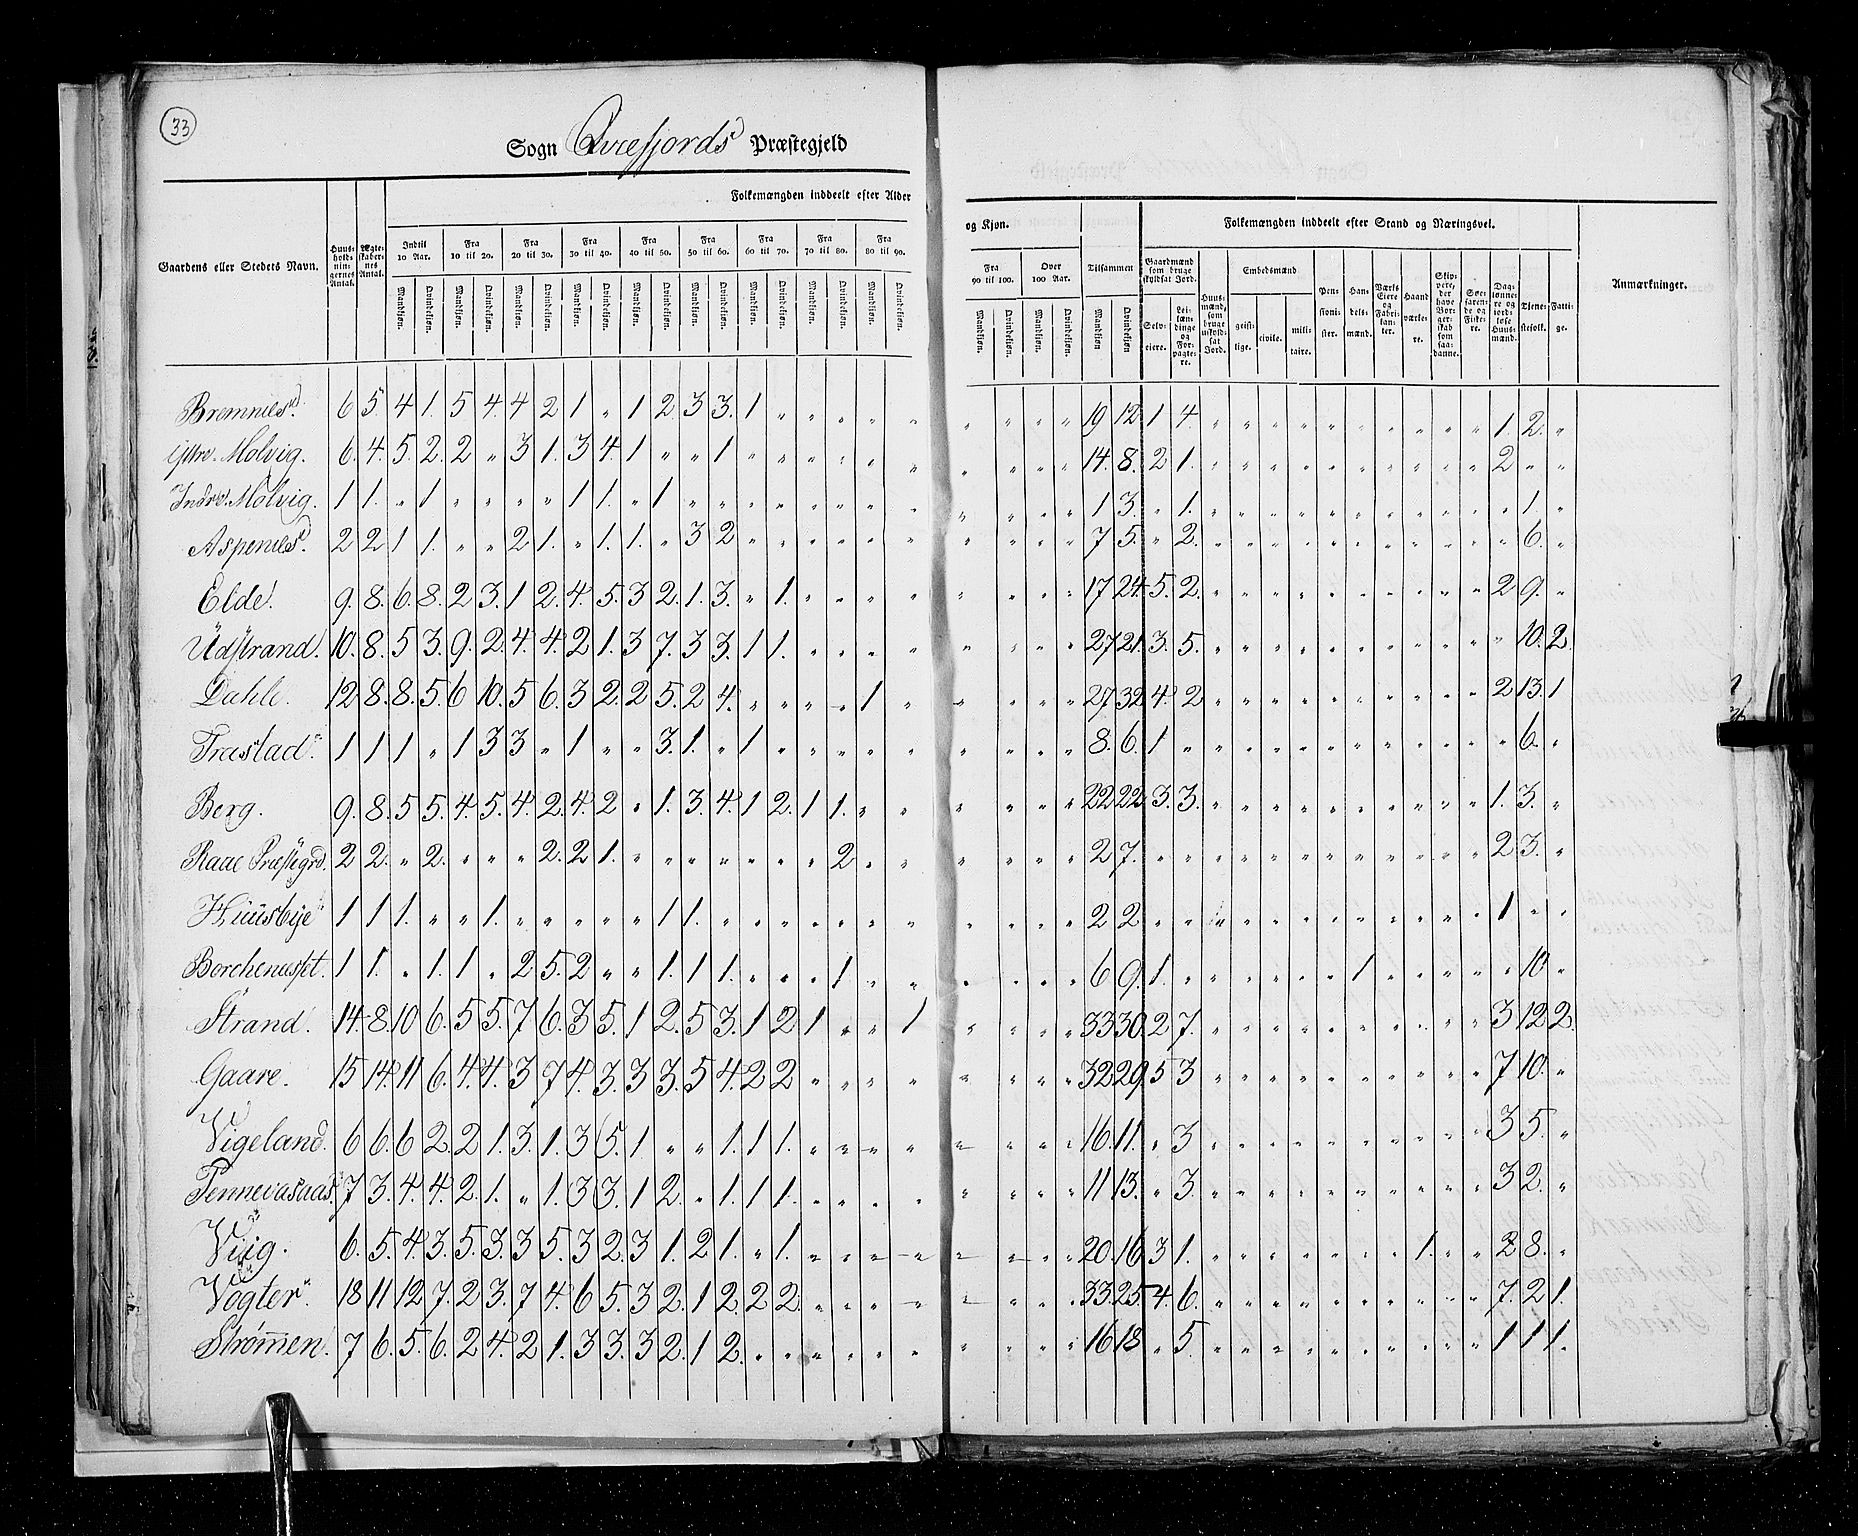 33
Sogn Qvæfjords Præstegjeld
Folkemængden inddeelt efter Alder og Kjøn.
Folkemængden inddeelt efter Stand og Næringsvei.
Gaardens eller Stedets Navn.
Huusholdningernes Antal.
Ægteskabernes Antal.
Indtil 10 Aar.
Fra 10 til 20.
Fra 20 til 30.
Fra 30 til 40.
Fra 40 til 50.
Fra 50 til 60.
Fra 60 til 70.
Fra 70 til 80.
Fra 80 til 90.
Fra 90 til 100.
Over 100 Aar.
Tilsammen
Mandkjøn. Qvindekjøn.
Gaardmænd som bruge skyldsat Jord.
Selveiere.
Leilændinge og Forpagtere.
Huusmænd, som bruge uskyldsat Jord.
Embedsmænd
geistlige.
civile.
militaire.
Pensionister.
Handelsmænd.
Værks Eiere og Fabrikanter.
Haandværkere.
Skippere, der have Borgerskab som saadanne.
Søefarende og Fiskere.
Daglønnere og jordløse Huusmænd.
Tjenestefolk.
Fattige.
Anmærkninger.
Bremnes. 6 5. 4 1. 5 4. 4 2 1 " 1 2. 3 3. 1 " " " " " " " " " 19 12 1 4. " " " " " " " " " " 1. 2. "
Yttre Molvig. 6. 4. 5. 2. 2 " 3 1. 3 4. 1 " " 1 " " " " " " " " " " 14. 8. 2 1. " " " " " " " " " " 2 " "
Indre Molvig. 1 1. " 1 " " " " 1 1. " 1 " " " " " " " " " " " " 1 3. " 1. " " " " " " " " " " " 1. "
Aspenes. 2 2 1 1. " " 2 1. " 1. 1. " 3 2 " " " " " " " " " " 7 5. " 2. " " " " " " " " " " " 6. "
Elde. 9. 8. 6. 8. 2 3. 1 2. 4. 5. 3 2. 1. 3. " 1. " " " " " " " " 17 24. 5. 2. " " " " " " " " " " 2 9. "
Udstrand. 10. 8. 5 3. 9. 2. 4. 4. 2 1. 3 7. 3 3. 1 1. " " " " " " " " 27 21. 3. 5. " " " " " " " " " " " 10. 2.
Dahle. 12 8. 8. 5. 6 10. 5 6. 3 2. 2 5. 2 4. " " " " 1 " " " " " 27 32 4. 2 " " " " " " " " " " 2 13. 1
Træstad. 1 1 1 " 1 3 3 " 1 " " 3. 1. " 1 " " " " " " " " " 8. 6. 1 " " " " " " " " " " " " 6. "
Berg. 9. 8. 5 5. 4. 5. 4. 2. 4. 2 " 1. 3. 4. 1 2. 1 1. " " " " " " 22 22. 3. 3. " " " " " " " " " " 1. 3. "
Raae Præstegrd. 2 2. " 2. " " " 2. 2 1. " " " " " " " 2. " " " " " " 2 7. " " " " " " " " " " " " 2 3. "
Huusbye 1 1 1. " " 1. " " " " " 1 1. " " " " " " " " " " " 2 2. " " " " " " " " " " " " 1 " "
Borchenesset. 1 1. " 1. 1 " 2 5. 2 " " 1. 1 1 " " " 1 " " " " " " 6 9. 1 " " " " " " 1 " " " " " 10 "
Strand. 14. 8. 10 6. 5 5. 7 6. 3 5. 1 2. 5 3. 1 2 1 " " 1 " " " " 33 30. 2 7. " " " " " " " " " " 3 12 2.
Gaare. 15 14. 11 6. 4. 4. 3 7 4. 3. 3 3. 5 4. 2 2 " " " " " " " " 32 29. 5 3 " " " " " " " " " " 7 10. "
Vigeland. 6 6. 6 2. 2 1. 3. 1. 3 5. 1 " " 1. 1 1. " " " " " " " " 16. 11. " 3 " " " " " " " " " " 3 5. "
Tennevasaas. 7 3. 4. 4. 2 1. " 1. 3 3. 1 2. " 1. 1 1. " " " " " " " " 11 13. " 3. " " " " " " " " " " 3 2. "
Viig. 6. 5. 4. 3. 5. 3. 3 5. 3 2. 3 1. 2 1. " 1. " " " " " " " " 20. 16 3 1. " " " " " " " 1. " " 2 8. "
Vogter. 18 11 12 7. 2 3. 7 4. 6 5. 3 2. 1 2. 2 2. " " " " " " " " 33. 25. 4. 6. " " " " " " " " " " 7. 2 1.
Strømmen. 7 6. 5. 6. 2 4. 2 1. 3 3. 3 2. 1 2. " " " " " " " " " " 16 18. " 5. " " " " " " " " " " 1 1 1.